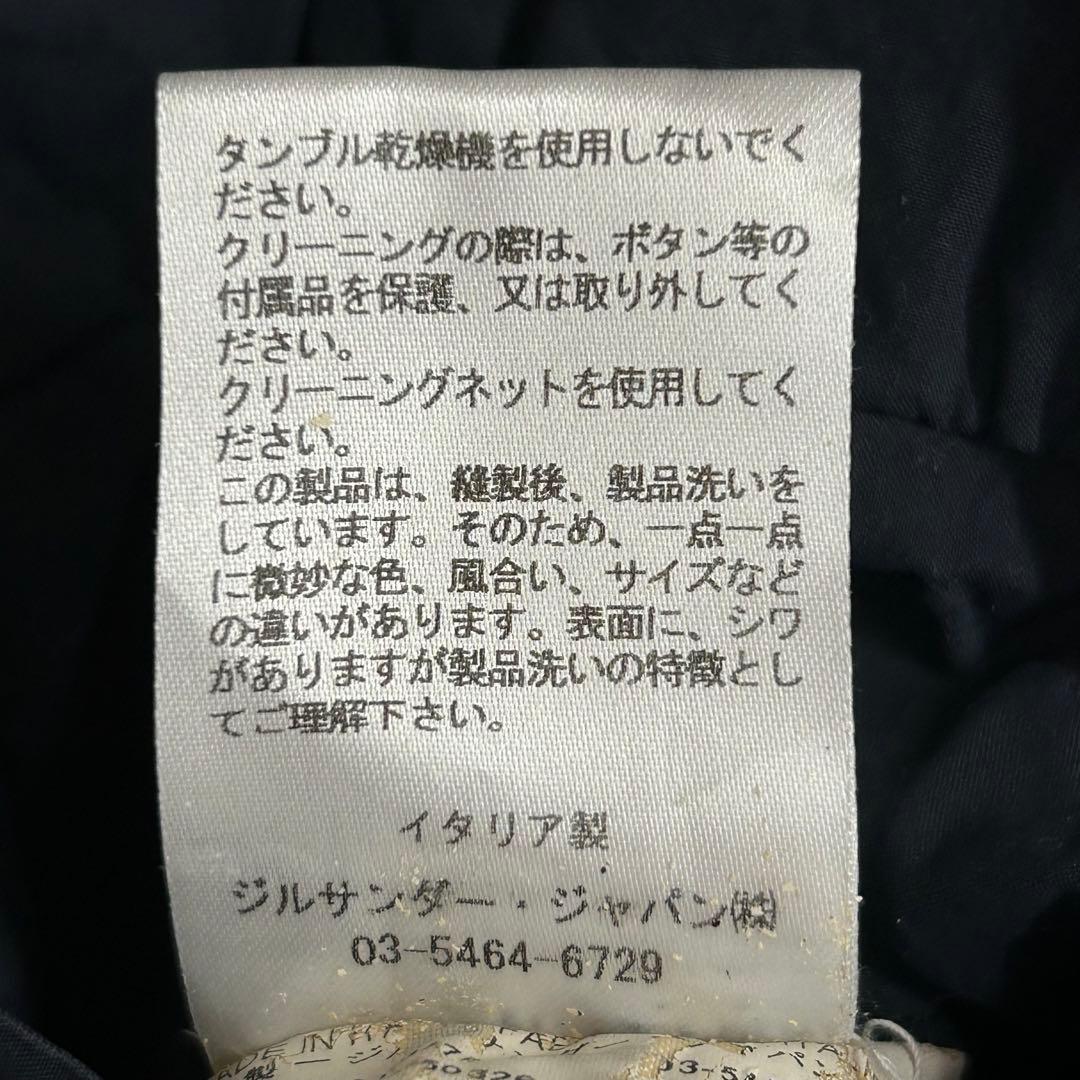 タンブル乾燥機を使用しないでく
ださい。
クリーニングの際は、ボタン等の
付属品を保護、又は取り外してく
ださい。
クリーニングネットを使用してく
ださい。
この製品は、縫製後、製品洗いを
しています。そのため、一点一点
に微妙な色、風合い、サイズなど
の違いがあります。表面に、シワ
がありますが製品洗いの特徴とし
てご理解下さい。
イタリア製
ジルサンダー・ジャパン㈱
03-5464-6729